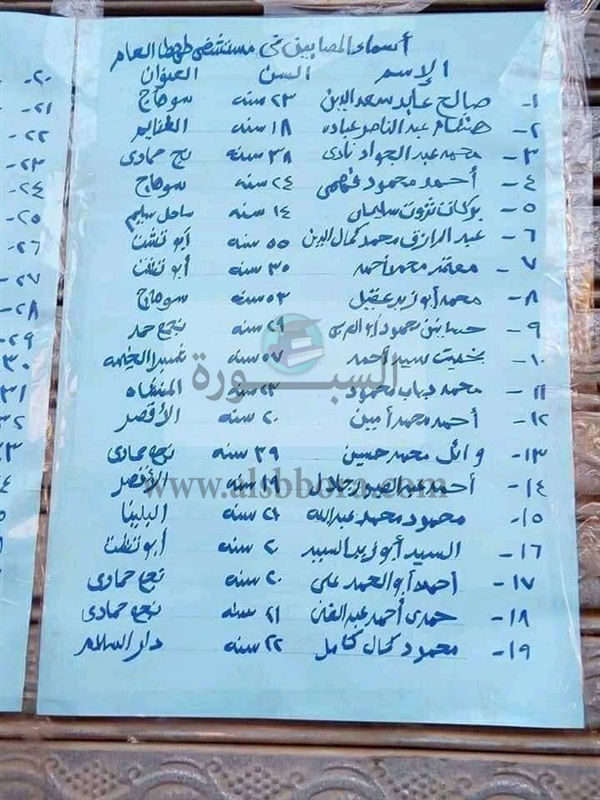 أسماء المصابين في مستشفى طهطا العام
الإسم السن العنوان
١- صالح عابد سعد الدين ٢٣ سنه سوهاج
٢- هشام عبد الناصر عباده ١٨ سنه الغنايم
٣- محمد عبد الجواد نادى ٣٨ سنه نجع حمادى
٤- أحمد محمود فهمى ٢٤ سنه سوهاج
٥- بركات ثروت سليمان ١٤ سنه ساحل سليم
٦- عبد الرازق محمد كمال الدين ٥٥ سنه أبو تشت
٧- معتمد محمد أحمد ٣٥ سنه أبو تشت
٨- محمد أبو زيد عقيل ٥٣ سنه سوهاج
٩- محمود سنه نجع حمد
١٠- بخيت سيد أحمد ٥٧ سنه شبرا الخيمه
السبورة
١١- محمد دياب محمود ٢٣ سنه المنشاه
١٢- أحمد محمد أمين ٢٠ سنه الأقصر
١٣- وائل محمد حسين ٣٩ سنه نجع حمادى
١٤- أحمد ١٩ سنه الأقصر
www.alsbbora.com
١٥- محمود محمد عبد الله ٢١ سنه البلينا
١٦- السيد أبو زيد السيد ٢٠ سنه أبو تشت
١٧- أحمد أبو الحمد على ٢٠ سنه نجع حمادى
١٨- حمدى أحمد عبد الغنى ٢١ سنه نجع حمادى
١٩- محمود كمال كامل ٢٢ سنه دار السلام
٢٠-
٢١-
٢٢-
٢٣-
٢٤-
٢٥-
٢٦-
٢٧-
٢٨-
٢٩-
٣٠
٣١
٣٢